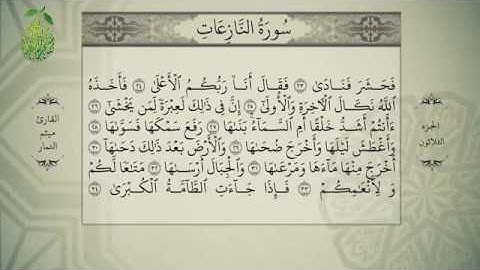 سُورَةُ النَّازِعَاتِ
فَحَشَرَ فَنَادَىٰ ﴿٢٣﴾ فَقَالَ أَنَا۠ رَبُّكُمُ ٱلْأَعْلَىٰ ﴿٢٤﴾ فَأَخَذَهُ
ٱللَّهُ نَكَالَ ٱلْآخِرَةِ وَٱلْأُولَىٰٓ ﴿٢٥﴾ إِنَّ فِى ذَٰلِكَ لَعِبْرَةً لِّمَن يَخْشَىٰٓ ﴿٢٦﴾
ءَأَنتُمْ أَشَدُّ خَلْقًا أَمِ ٱلسَّمَآءُ بَنَىٰهَا ﴿٢٧﴾ رَفَعَ سَمْكَهَا فَسَوَّىٰهَا ﴿٢٨﴾
وَأَغْطَشَ لَيْلَهَا وَأَخْرَجَ ضُحَىٰهَا ﴿٢٩﴾ وَٱلْأَرْضَ بَعْدَ ذَٰلِكَ دَحَىٰهَآ ﴿٣٠﴾
أَخْرَجَ مِنْهَا مَآءَهَا وَمَرْعَىٰهَا ﴿٣١﴾ وَٱلْجِبَالَ أَرْسَىٰهَا ﴿٣٢﴾ مَتَٰعًا لَّكُمْ
وَلِأَنْعَٰمِكُمْ ﴿٣٣﴾ فَإِذَا جَآءَتِ ٱلطَّآمَّةُ ٱلْكُبْرَىٰ ﴿٣٤﴾
الجزء
الثلاثون
القارئ
ميثم
التمار